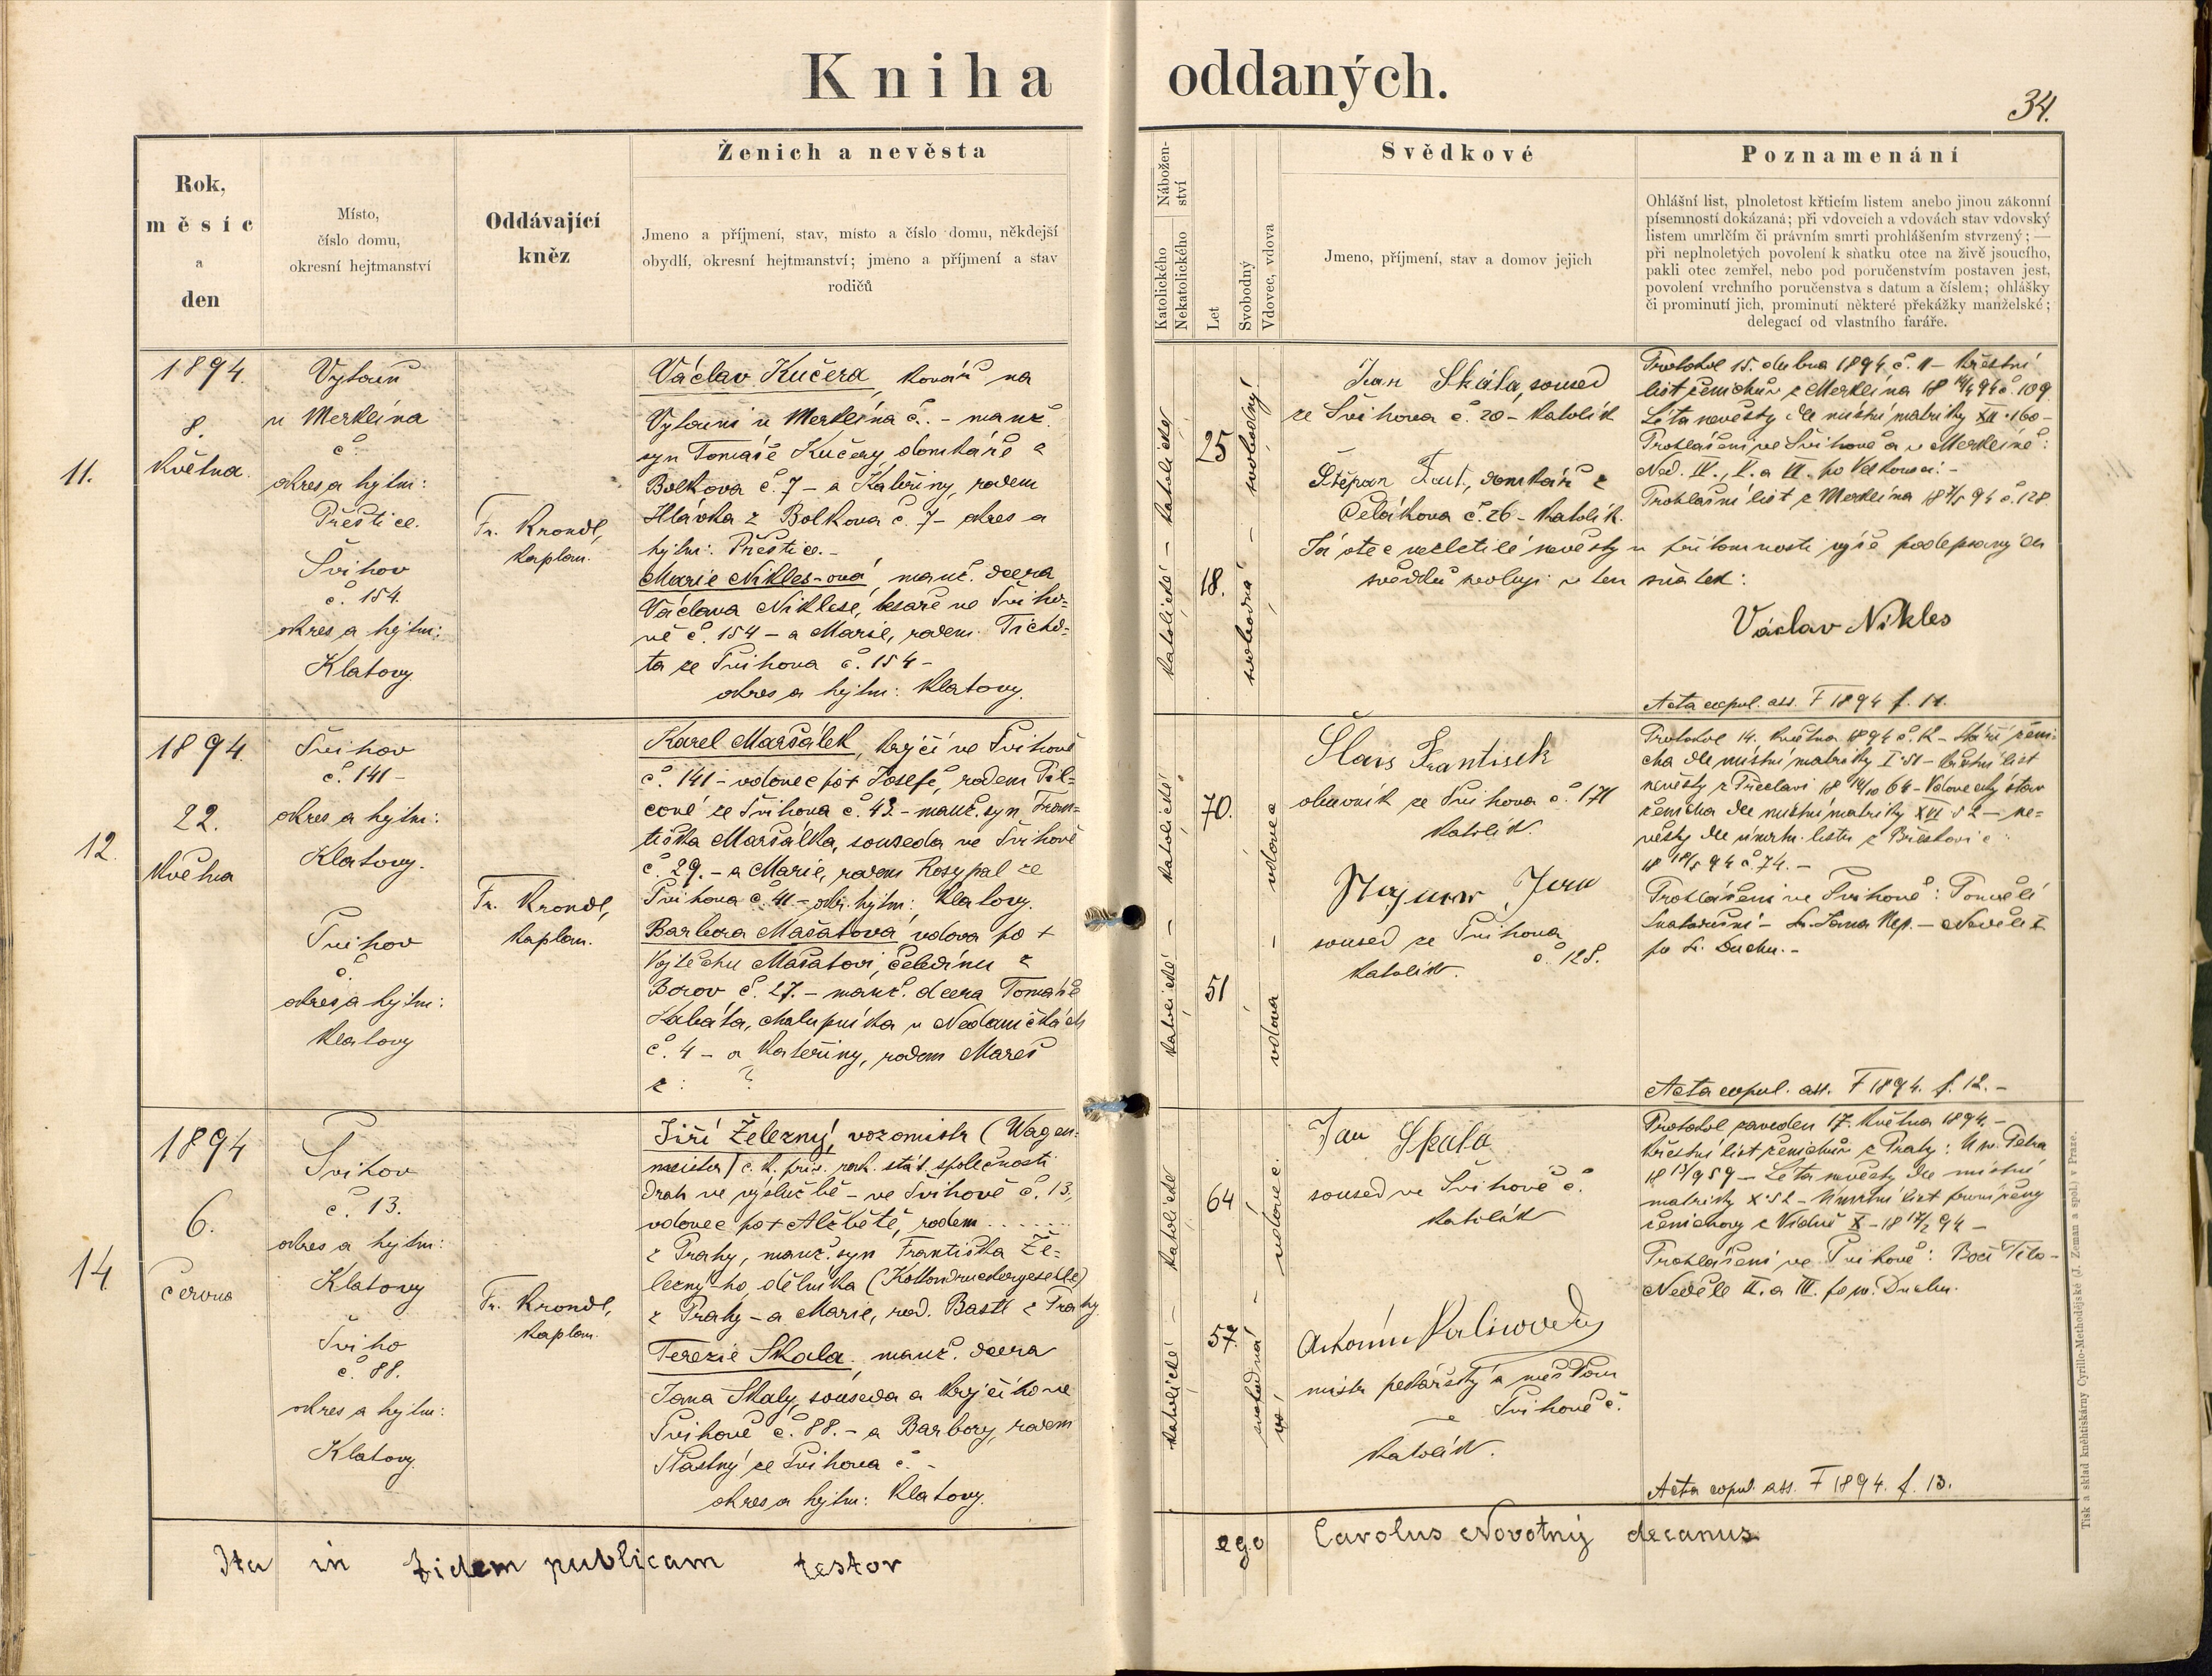 Kniha oddaných.
34.
Rok,
měsíc
a
den
Místo,
číslo domu,
okresní hejtmanství
Oddávající
kněz
Ženich a nevěsta
Jmeno a příjmení, stav, místo a číslo domu, někdejší
obydlí, okresní hejtmanství; jmeno a příjmení a stav
rodičů
Nábožen-
ství
Katolického
Nekatolického
Let
Svobodný
Vdovec, vdova
Svědkové
Jmeno, příjmení, stav a domov jejich
Poznamenání
Ohlášní list, plnoletost křticím listem anebo jinou zákonní
písemností dokázaná; při vdovcích a vdovách stav vdovský
listem umrlčím či právním smrti prohlášením stvrzený; —
při neplnoletých povolení k sňatku otce na živě jsoucího,
pakli otec zemřel, nebo pod poručenstvím postaven jest,
povolení vrchního poručenstva s datum a číslem; ohlášky
či prominutí jich, prominutí některé překážky manželské;
delegací od vlastního faráře.
11.
1894.
8.
Května.
u Merklína
č.
okres a hejtm:
Přeštice.
Švihov
č. 154.
okres a hejtm:
Klatovy
Fr. Krondl,
kaplan.
Václav Kučera, kovář na
Vytouni u Merklína č. - manž.
syn Tomáše Kučery domkáře z
Bolkova č. 7 - a Kateřiny, rodem
Hlávka z Bolkova č. 7 - okres a
hejtm: Přeštice. -
Marie Nikles-ová, manž. dcera
Václava Niklese, tesaře ve Šviho-
vě č. 154 - a Marie, rodem Ticho-
ta ze Švihova č. 154 -
okres a hejtm: Klatovy.
katolické - katolické
25
18.
svobodná - svobodný
Jan Skála, soused
ze Švihova č. 20 - katolík
Štěpán domkář z
č. 26 - katolík.
Já otec nezletilé nevěsty u přítomnosti výše podepsaných
svědků svoluji v ten sňatek:
Václav Nikles
Protokol 15. dubna 1894 č. 11 - Křestní
list ženichův z Merklína č. 109
Léta nevěsty dle místní matriky XII. 160 -
Prohlášení ve Švihově a v Merklíně:
Ned. IV., V. a VI. po Velkonoci. -
Prohlášní list z Merklína č. 128.
Acta copul. ass. F 1894 f. 11.
12.
1894.
22.
Května
Švihov
č. 141 -
okres a hejtm:
Klatovy.
Švihov
č.
okres a hejtm:
Klatovy
Fr. Krondl,
kaplan.
Karel Maršálek, krejčí ve Švihově
č. 141 - vdovec po + Josefě, rodem Pil-
cové ze Švihova č. 43. - manž. syn Fran-
tiška Maršálka, souseda ve Švihově
č. 29. - a Marie, rodem Rosypal ze
Švihova č. 41 - okr. hejtm: Klatovy.
Barbora Mašatová, vdova po +
Vojtěchu Mašatovi, čeledínu z
Borov č. 27. - manž. dcera Tomáše
Kabáta, chalupníka v Nedaničkách
č. 4 - a Kateřiny, rodem Mareš
z: ?
katolické - katolické
70.
51
vdova - vdovec
František
obuvník ze Švihova č. 171
katolík.
Jan
soused ze Švihova
katolík. č. 128.
Protokol 14. května 1894 č. 12 - Stáří ženi-
cha dle místní matriky I. 51 - Křestní list
nevěsty z 64 - Vdovecký stav
ženicha dle místní matriky XVI 52 - ne-
věsty dle úmrtn. listu z
č. 74. -
Prohlášení ve Švihově: Pondělí
Svatodušní - Sv. Jana Nep. - Neděle I.
po Sv. Duchu. -
Acta copul. ass. F 1894. f. 12. -
14.
1894
6.
června
Švihov
č. 13.
okres a hejtm:
Klatovy
Šviho
č. 88.
okres a hejtm:
Klatovy
Fr. Krondl,
kaplan.
Jiří Železný, vozomistr (Wagen-
meister) c. k. priv. rak. stát. společnosti
drah ve výslužbě - ve Švihově č. 13.
vdovec po + Alžbětě, rodem . . . . .
z Prahy, manž. syn Františka Že-
lezný-ho, dělníka (Kattondruckergeselle)
z Prahy - a Marie, rod. Bastl z Prahy.
Terezie Skala, manž. dcera
Jana Skaly, souseda a krejčího ve
Švihově č. 88. - a Barbory, rodem
Šťastný ze Švihova č. -
okres a hejtm: Klatovy.
katolické - katolické
64
57.
svobodná - vdovec.
Jan Skala
soused ve Švihově č.
katolík
Antonín
mistr pekařský a měšťan
ve Švihově č.
katolík.
Protokol zaveden 17. května 1894. -
Křestní list ženichův z Prahy: U sv. Petra
- Léta nevěsty dle místní
matriky X. 52 - Úmrtní list první ženy
ženichovy z Vídně X -
Prohlášení ve Švihově: Boží Tělo -
Neděle II. a III. po sv. Duchu.
Acta copul. ass. F 1894. f. 13.
Ita in fidem publicam testor ego Carolus Novotný decanus.
Tisk a sklad kněhtiskárny Cyrillo-Methodějské (J. Zeman a spol.) v Praze.